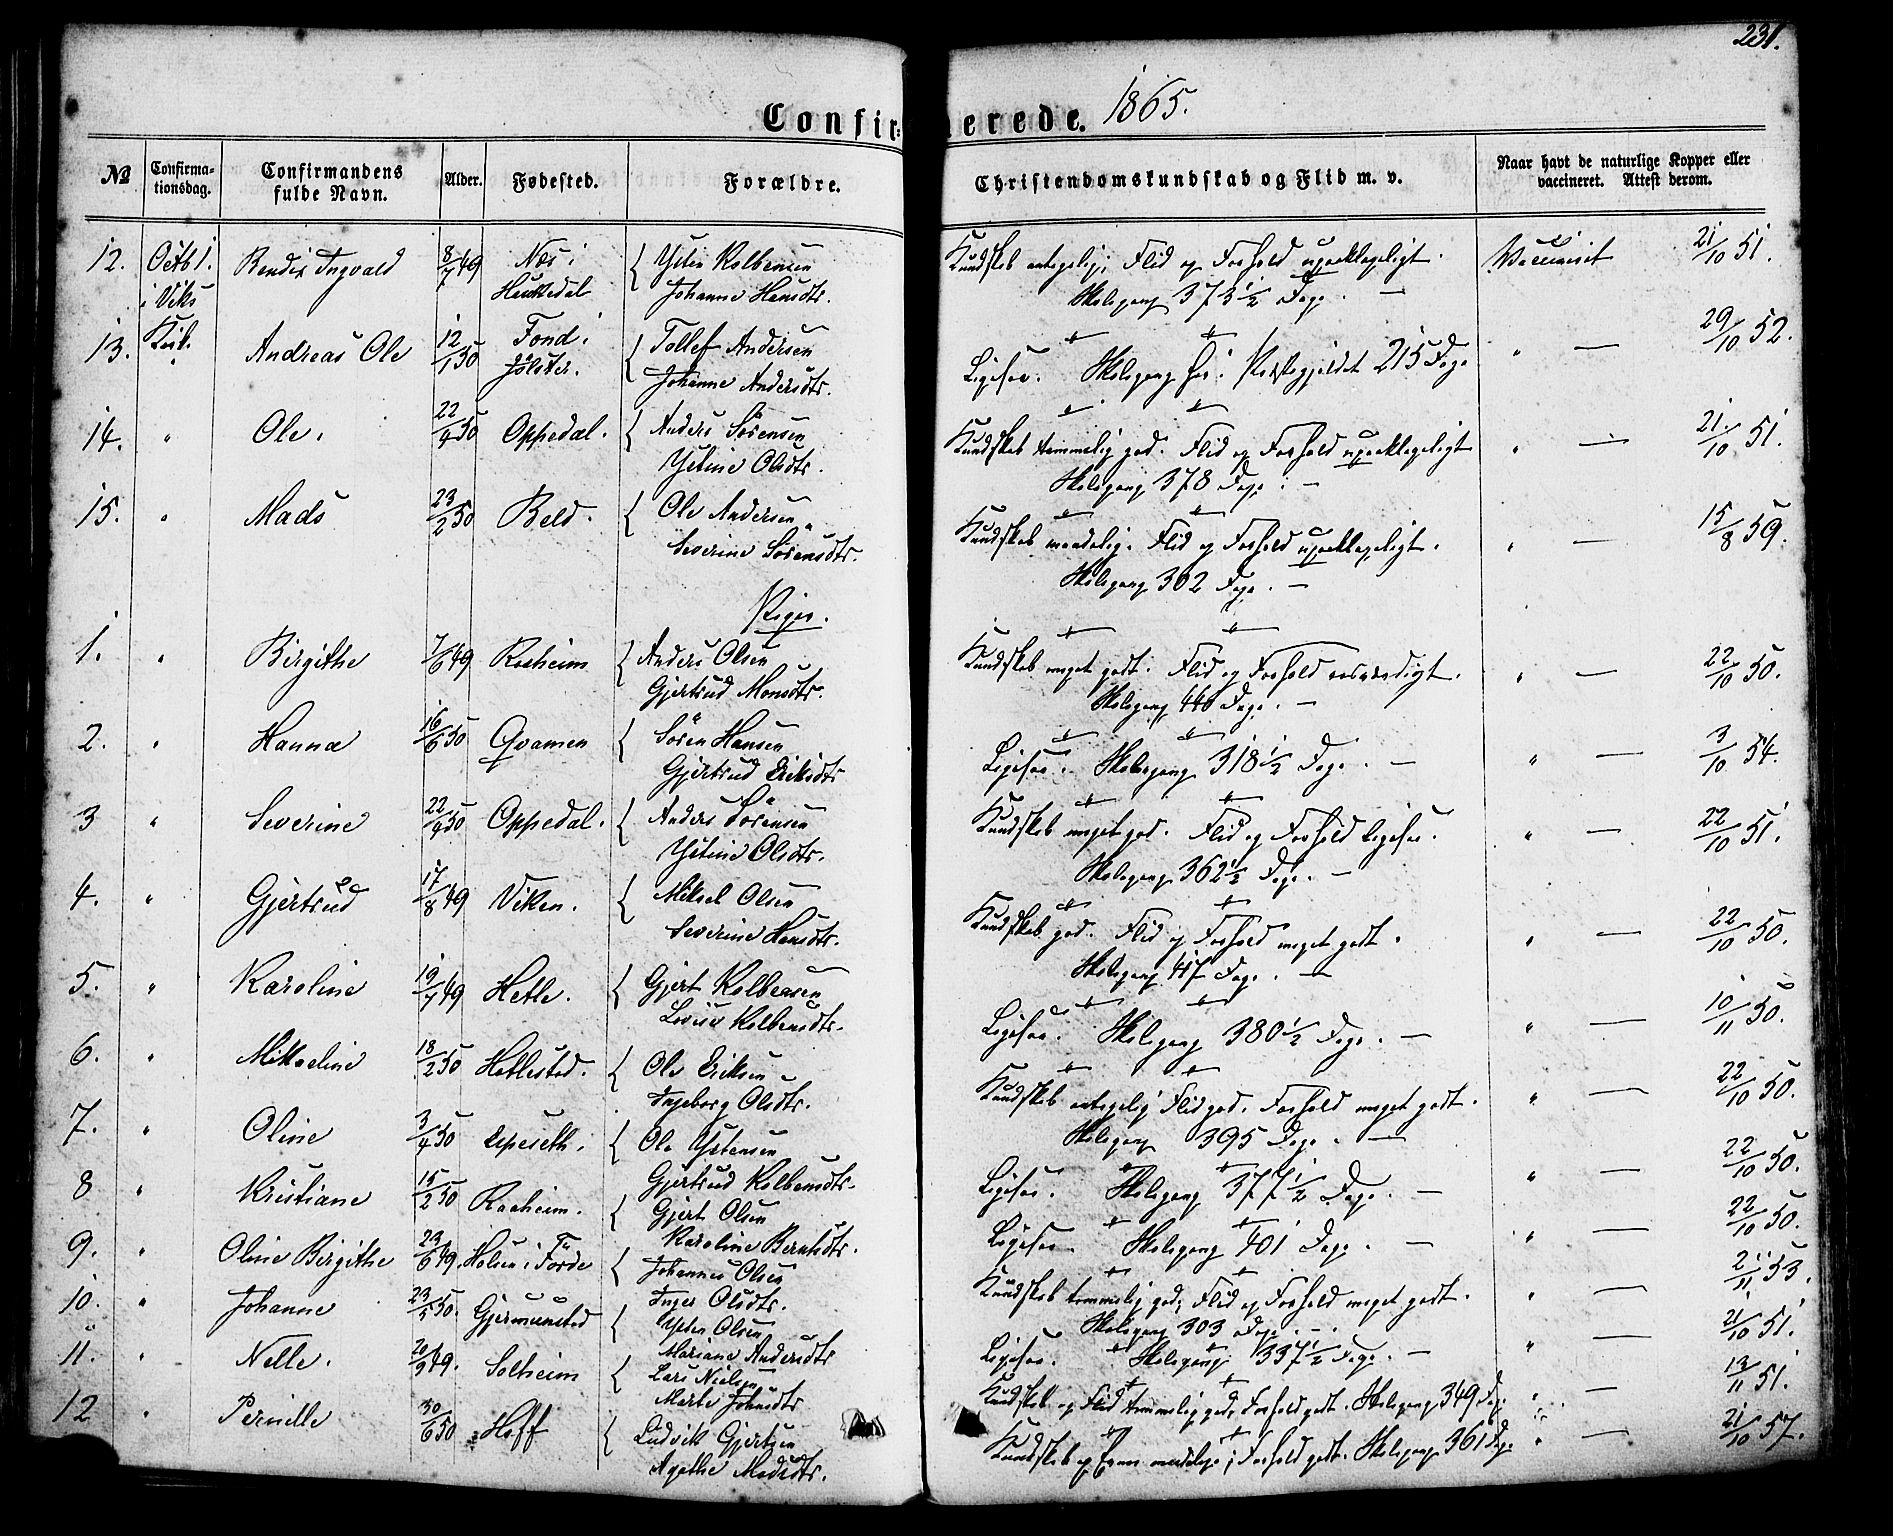 231.
Confirmerede. 1865.
№ Confirmationsdag. Confirmandens fulde Navn. Alder. Fødested. Forældre. Christendomskundskab og Flid m. v. Naar havt de naturlige Kopper eller vaccineret. Attest derom.
12. Octb 1. Ingvald 8/7 49 Næs i { Kolbensen Kundskab antagelig; Flid og Forhold upaaklageligt. Vaccineret 21/10 51.
i Viks Haukedal Johanne Hansdtr. Skolegang 373 1/2 Dage. —
13. Kirk. Andreas Ole 12/1 50 Fond i { Tollef Andersen 29/10 52.
" Jölster. Johanne Andersdtr. Ligesaa. Skolegang her i Præstegjeldet 215 Dage " —
14. " Ole. 22/4 50 Oppedal. { Anders Sörensen Kundskab temmelig god. Flid og Forhold upaaklageligt " — 21/10 51.
Ystine Olsdtr. Skolegang 378 Dage. —
15. " Mads 23/2 50 Beld. { Ole Andersen Kundskab maadelig. Flid og Forhold upaaklageligt. " — 15/8 59.
Severine Sörensdtr. Skolegang 302 Dage. —
Piger.
1. " Birgithe 7/6 49 Raaheim { Anders Olsen Kundskab meget godt. Flid og Forhold rosværdigt. " — 22/10 50.
Gjertrud Monsdtr. Skolegang 440 Dage. —
2. " Hanna 16/6 50 Qvamen { Sören Hansen Ligesaa. Skolegang 318 1/2 Dage. — " — 3/10 54.
Gjertrud Eriksdtr
3 " Severine 22/4 50 Oppedal. { Anders Sörensen Kundskab meget god. Flid og Forhold ligesaa. " — 22/10 51.
Ystine Olsdtr. Skolegang 362 1/2 Dage. —
4. " Gjertrud 17/8 49 Viken. { Mikkel Olsen Kundskab god. Flid og Forhold meget godt. " — 22/10 50.
Severine Hansdtr. Skolegang 417 Dage. —
5. " Karoline 19/7 49 Hetle. { Gjert Kolbensen Ligesaa. Skolegang 380 1/2 Dage. — " — 10/11 50.
Lovise Kolbensdtr.
6. " Mikaeline 18/2 50 Hetlested. { Ole Eriksen Kundskab antagelig Flid god. Forhold meget godt. " — 22/10 50.
Ingeborg Olsdtr. Skolegang 395 Dage. —
7. " Oline 3/4 50 Espeseth. { Ole Ystensen Ligesaa. Skolegang 377 1/2 Dage. — " — 22/10 50.
Gjertrud Kolbensdtr.
8 " Kristiane 15/2 50 Raaheim. { Gjert Olsen Ligesaa. Skolegang 401 Dage. — " — 22/10 50.
Karoline Berntsdtr.
9. " Oline Birgithe 23/6 49. Holsen i Förde { Johannes Olsen Kundskab temmelig god, Flid og Forhold meget godt. " — 2/11 53.
Inger Olsdtr. Skolegang 303 Dage. —
10. " Johanne 23/5 50. Gjermundstad { Olsen Ligesaa. Skolegang 337 1/2 Dage. — " — 21/10 51.
Mariane Andersdtr
11. " Nelle. 20/9 49. Solheim { Lars Nielsen Kundskab og Flid temmelig god, Forhold godt. Skolegang 349 Dage " — 13/11 51.
Marte Johnsdtr
12 " Pernille 30/6 50 Hoff { Ludvik Gjertsen Kundskab og Evner maadelige; Forhold godt. Skolegang 361 Dage " — 21/10 57.
Agathe Madsdtr.